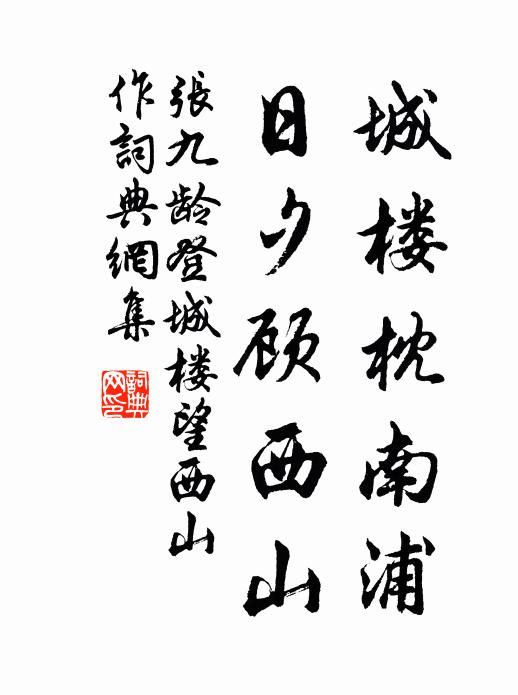 城楼枕南浦
日夕顾西山
張九龄登城楼望西山
作詞典網集
詞典
网印